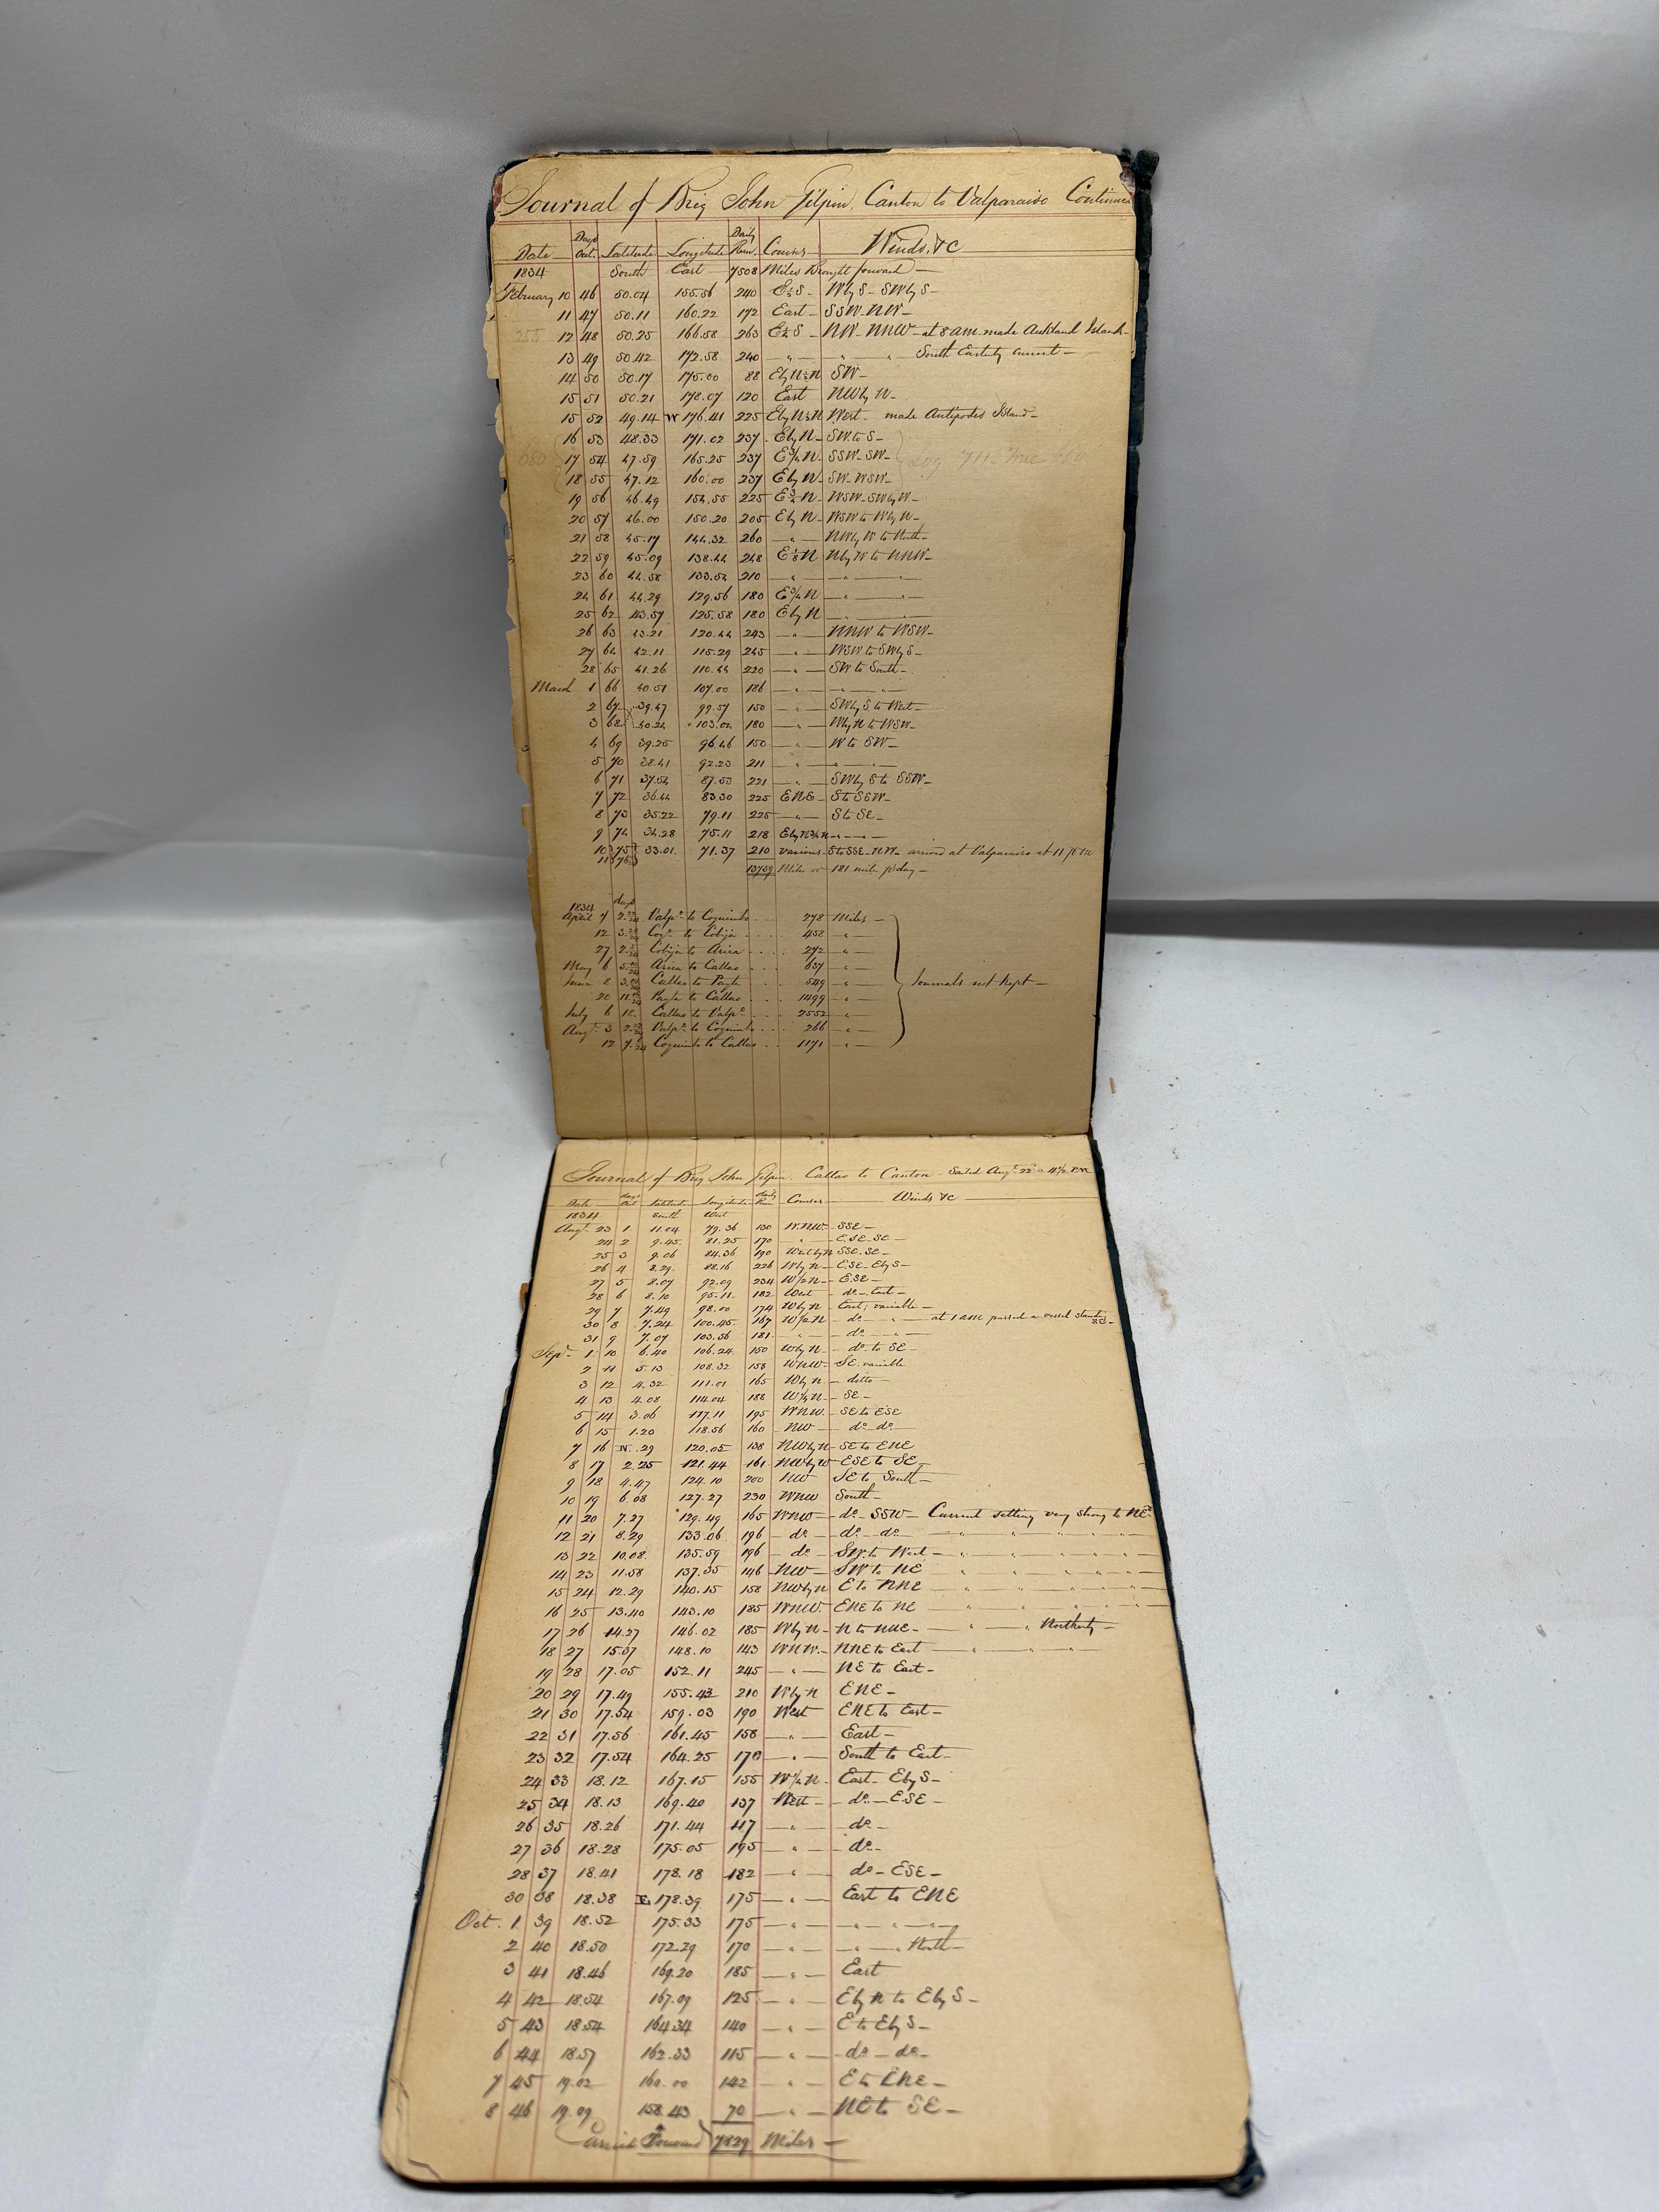 Journal of Brig John Gilpin, Canton to Valparaiso Continued
Date Days Out. Latitude Longitude Daily Run. Courses Winds, &c
1834 South East 7508 Miles Brought forward —
February 10 46 50.04 155.56 240 E½S - W by S - SW by S -
11 47 50.11 160.22 172 East - SSW - NW -
12 48 50.25 166.58 263 NW - NNW - at 8 AM made Auckland Island -
13 49 50.42 172.58 240 — " — " " South Easterly current —
14 50 50.17 175.00 88 E by N½N SW -
15 51 50.21 178.07 120 East NW by N -
15 52 49.14 W 176.41 225 E by N½N West - made Antipodes Island -
16 53 48.33 171.02 237 E by N - SW to S -
17 54 47.59 165.25 237 E¾N - SSW - SW - Log 711 - True
18 55 47.12 160.00 237 E by N - SW - WSW -
19 56 46.49 154.55 225 E¾N - WSW - SW by W -
20 57 46.00 150.20 205 E by N - WSW to W by N -
21 58 45.17 144.32 260 — " — NW by W to North -
22 59 45.09 138.44 248 E½N N by W to NNW -
23 60 44.58 133.54 210 — " — " —
24 61 44.29 129.56 180 E¾N — " —
25 62 43.57 125.58 180 E by N — " —
26 63 43.21 120.44 243 — " — NNW to WSW -
27 64 42.11 115.29 245 — " — WSW to SW by S -
28 65 41.26 110.44 220 — " — SW to South -
March 1 66 40.51 107.00 186 — " — " —
2 67 39.47 99.57 150 — " — SW by S to West -
3 68 40.24 103.04 180 — " — W by N to WSW -
4 69 39.25 96.46 150 — " — W to SW -
5 70 38.41 92.23 211 — " — " —
6 71 37.54 87.53 221 — " — SW by S to SSW -
7 72 36.44 83.30 225 ENE - S to SSW -
8 73 35.22 79.11 225 — " — S to SE -
9 74 34.28 75.11 218 E by N¾N — " —
10 75 33.01 71.37 210 various - S to SSE - NW - arrived at Valparaiso at 11 PM
11
13709 Miles or 181 mile p day -
1834 days
April 7 Valpo to Coquimbo . . . 278 Miles -
12 Coqo to Cobija . . . . 458 — " —
27 Cobija to Arica . . . . 272 — " —
May 6 Arica to Callao . . . 637 — " —
June 8 Callao to Payta . . . 549 — " — Journals not Kept —
20 Payta to Callao . . . 1499 — " —
July 6 18. Callao to Valpo . . . 2552 — " —
Augt 3 Valpo to Coquimbo . . . 266 — " —
12 Coquimbo to Callao . . 1171 — " —
Journal of Brig John Gilpin, Callao to Canton - Sailed Augt 22d
Date days Out Latitude Longitude daily Run Courses Winds &c
1834 South West
Augt 23 1 11.04 79.36 130 WNW - SSE -
24 2 9.45 81.25 170 — " — ESE - SE -
25 3 9.06 84.36 190 West by N SSE - SE -
26 4 8.29 88.16 226 W by N - ESE - E by S -
27 5 8.07 92.09 234 W½N - ESE -
28 6 8.10 95.11 182 West - do - East -
29 7 7.49 98.00 174 W by N - East, variable -
30 8 7.24 100.45 167 W½N - do — " — at 1 AM passed a vessel standing SE -
31 9 7.07 103.56 181 — " — do — " —
Sepr 1 10 6.40 106.24 150 W by N - do to SE -
2 11 5.13 108.32 158 WNW - SE variable
3 12 4.32 111.01 165 W by N - ditto -
4 13 4.08 114.04 188 W¼N - SE -
5 14 3.06 117.11 195 WNW - SE to ESE
6 15 1.20 118.56 160 NW - do do -
7 16 N .29 120.05 138 NW by N - SE to ENE
8 17 2.25 121.44 161 NW by W - ESE to SE -
9 18 4.47 124.10 200 NW SE to South -
10 19 6.08 127.27 230 WNW South -
11 20 7.27 129.49 165 WNW - do - SSW - Current setting very strong to NE
12 21 8.29 133.06 196 - do - do - do - " " " " "
13 22 10.08 135.59 196 - do - SW to West - " " " " "
14 23 11.58 137.35 146 NW - SW to NE " " " " "
15 24 12.29 140.15 158 NW by N E to NNE " " " " "
16 25 13.40 143.10 185 WNW - ENE to NE " " " " "
17 26 14.27 146.02 185 W by N - N to NNE - " " Northerly -
18 27 15.37 148.10 143 WNW - NNE to East " " "
19 28 17.05 152.11 245 — " — NE to East -
20 29 17.49 155.43 210 W by N ENE -
21 30 17.54 159.03 190 West ENE to East -
22 31 17.56 161.45 158 — " — East -
23 32 17.54 164.25 170 — " — South to East -
24 33 18.12 167.15 155 W¼N - East - E by S -
25 34 18.13 169.40 137 West - do - ESE -
26 35 18.26 171.44 117 — " — do -
27 36 18.28 175.05 195 — " — do -
28 37 18.41 178.18 182 — " — do - ESE -
30 38 18.38 E. 178.39 175 — " — East to ENE
Oct. 1 39 18.52 175.33 175 — " — " — " —
2 40 18.50 172.29 170 — " — " — North -
3 41 18.46 169.20 185 — " — East
4 42 18.54 167.09 125 — " — E by N to E by S -
5 43 18.54 164.34 140 — " — E to E by S -
6 44 18.57 162.33 115 — " — do - do -
7 45 19.02 160.00 142 — " — E to ENE -
8 46 19.09 158.43 70 — " — NE to SE -
Carried Forward 7829 Miles -